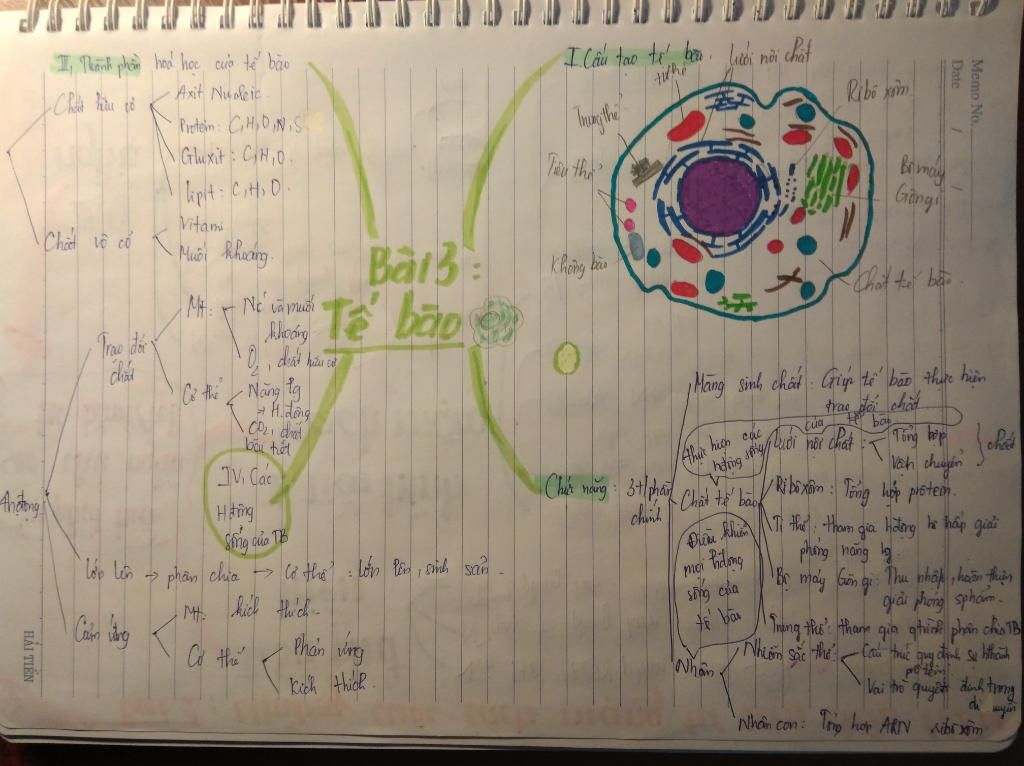 Memo No.
Date / /
Bài 3:
Tế bào
I. Cấu tạo tế bào.
lưới nội chất
Ribôxôm
Bộ máy
Gôngi
Chất tế bào
Trung thể
Tiêu thể
Không bào
III, Thành phần hoá học của tế bào
Chất hữu cơ
Axit Nucleic.
Protein: C, H, O, N, S
Gluxit: C, H, O.
Lipit: C, H, O.
Chất vô cơ
Vitami
Muối khoáng.
IV, Các
H.động
sống của TB
Trao đổi
chất
Mt:
Nc và muối
khoáng
O2, chất hữu cơ
Cơ thể
Năng lg
→ H.động
CO2, chất
bài tiết
lớn lên → phân chia → Cơ thể: lớn lên, sinh sản.
Cảm ứng
Mt: kích thích.
Cơ thể
Phản ứng
Kích thích.
Chức năng:
3 t/phần
chính
Màng sinh chất: Giúp tế bào thực hiện
trao đổi chất
Thực hiện các
h.động sống
của tế bào
Chất tế bào
Lưới nội chất:
Tổng hợp
Vận chuyển
chất
Ribôxôm: Tổng hợp protein.
Ti thể: tham gia h.động hô hấp giải
phóng năng lg.
Bộ máy Gôngi: Thu nhập, hoàn thiện
giải phóng sphẩm.
Trung thể: tham gia qtrình phân chia TB
Điều khiển
mọi h.động
sống của
tế bào
Nhân
Nhiễm sắc thể
Cấu trúc quy định sự hthành
prôtêin
Vai trò quyết định trong
di truyền
Nhân con: Tổng hợp ARN ribôxôm
HẢI TIẾN